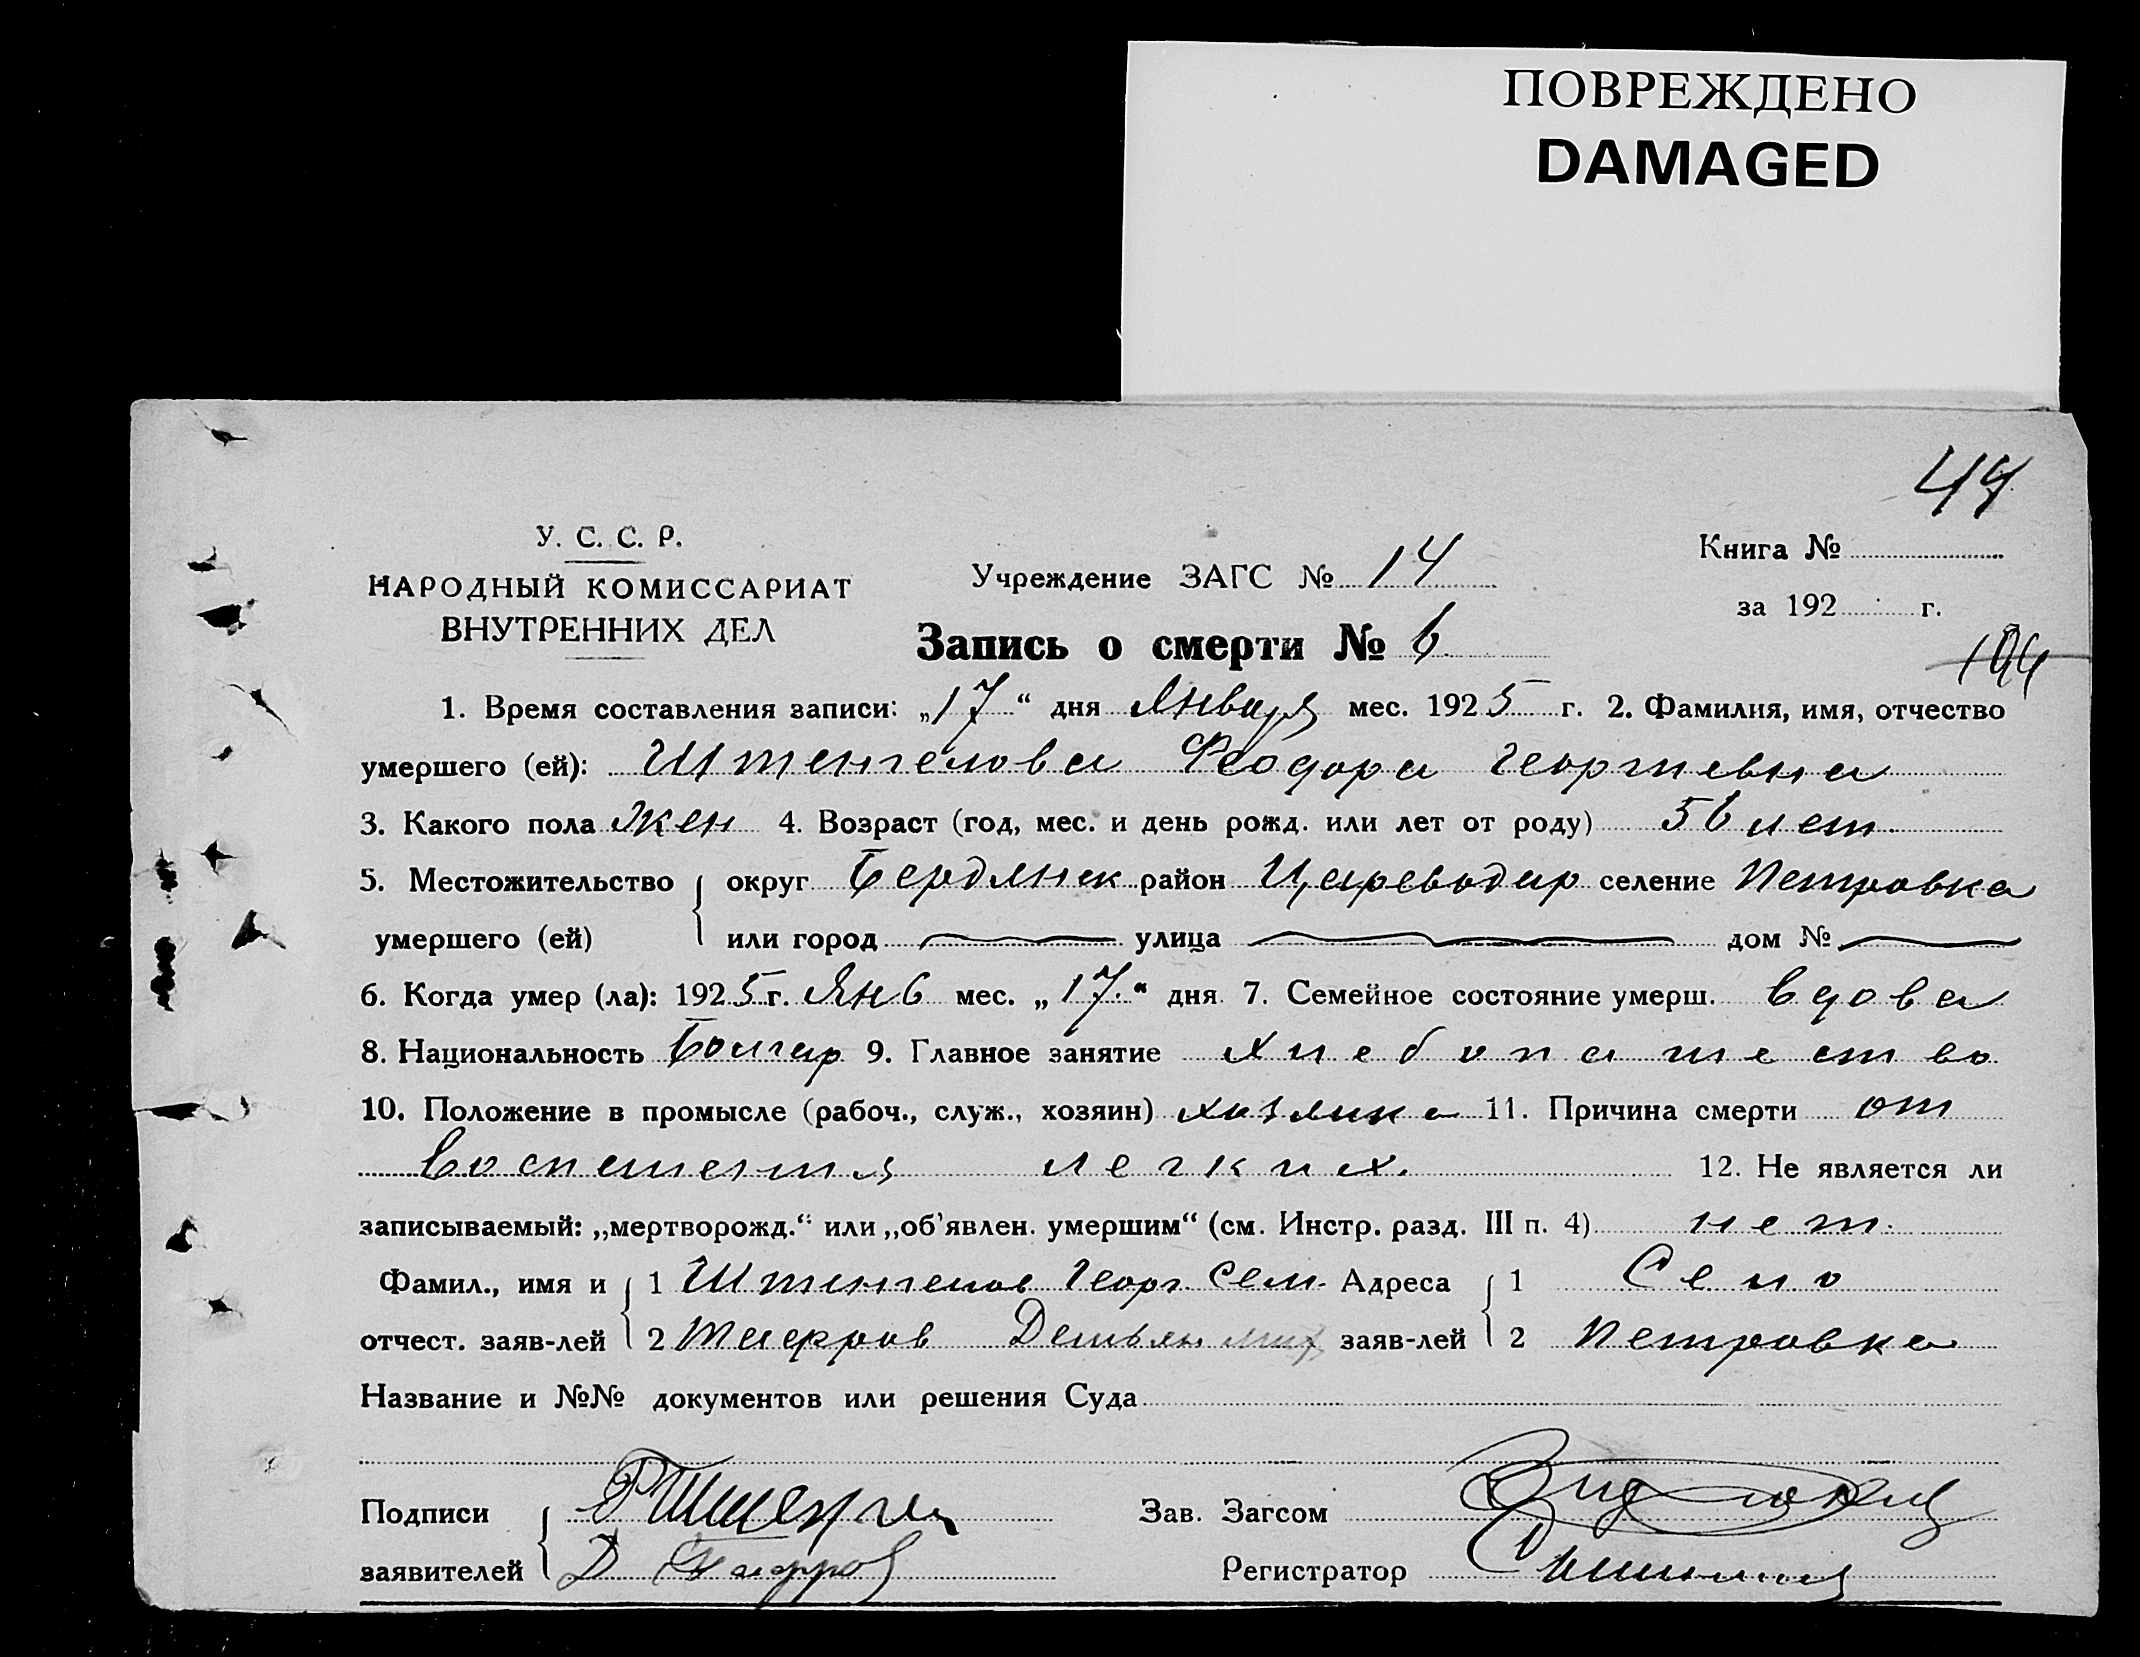 ПОВРЕЖДЕНО
DAMAGED
У. С. С. Р.
НАРОДНЫЙ КОМИССАРИАТ
ВНУТРЕННИХ ДЕЛ
Учреждение ЗАГС № 14
Книга №
за 192 г.
Запись о смерти № 6
1. Время составления записи: „17“ дня Января мес. 1925 г. 2. Фамилия, имя, отчество
умершего (ей): Штенгелова Феодора Георгиевна
3. Какого пола жен 4. Возраст (год, мес. и день рожд. или лет от роду) 56 лет
5. Местожительство округ Бердянск район Цареводар селение Петровка
умершего (ей) или город улица дом №
6. Когда умер (ла): 1925 г. Янв мес. „17“ дня 7. Семейное состояние умерш. вдова
8. Национальность Болгар 9. Главное занятие Хлебопашество
10. Положение в промысле (рабоч., служ., хозяин) хозяика 11. Причина смерти от
Воспаления легких. 12. Не является ли
записываемый: „мертворожд.“ или „об'явлен. умершим“ (см. Инстр. разд. III п. 4) нет.
Фамил., имя и 1 Штенгелов Георг. Сем. Адреса 1 Село
отчест. заяв-лей 2 Демьян заяв-лей 2 Петровка
Название и №№ документов или решения Суда
Подписи Зав. Загсом
заявителей Д Регистратор